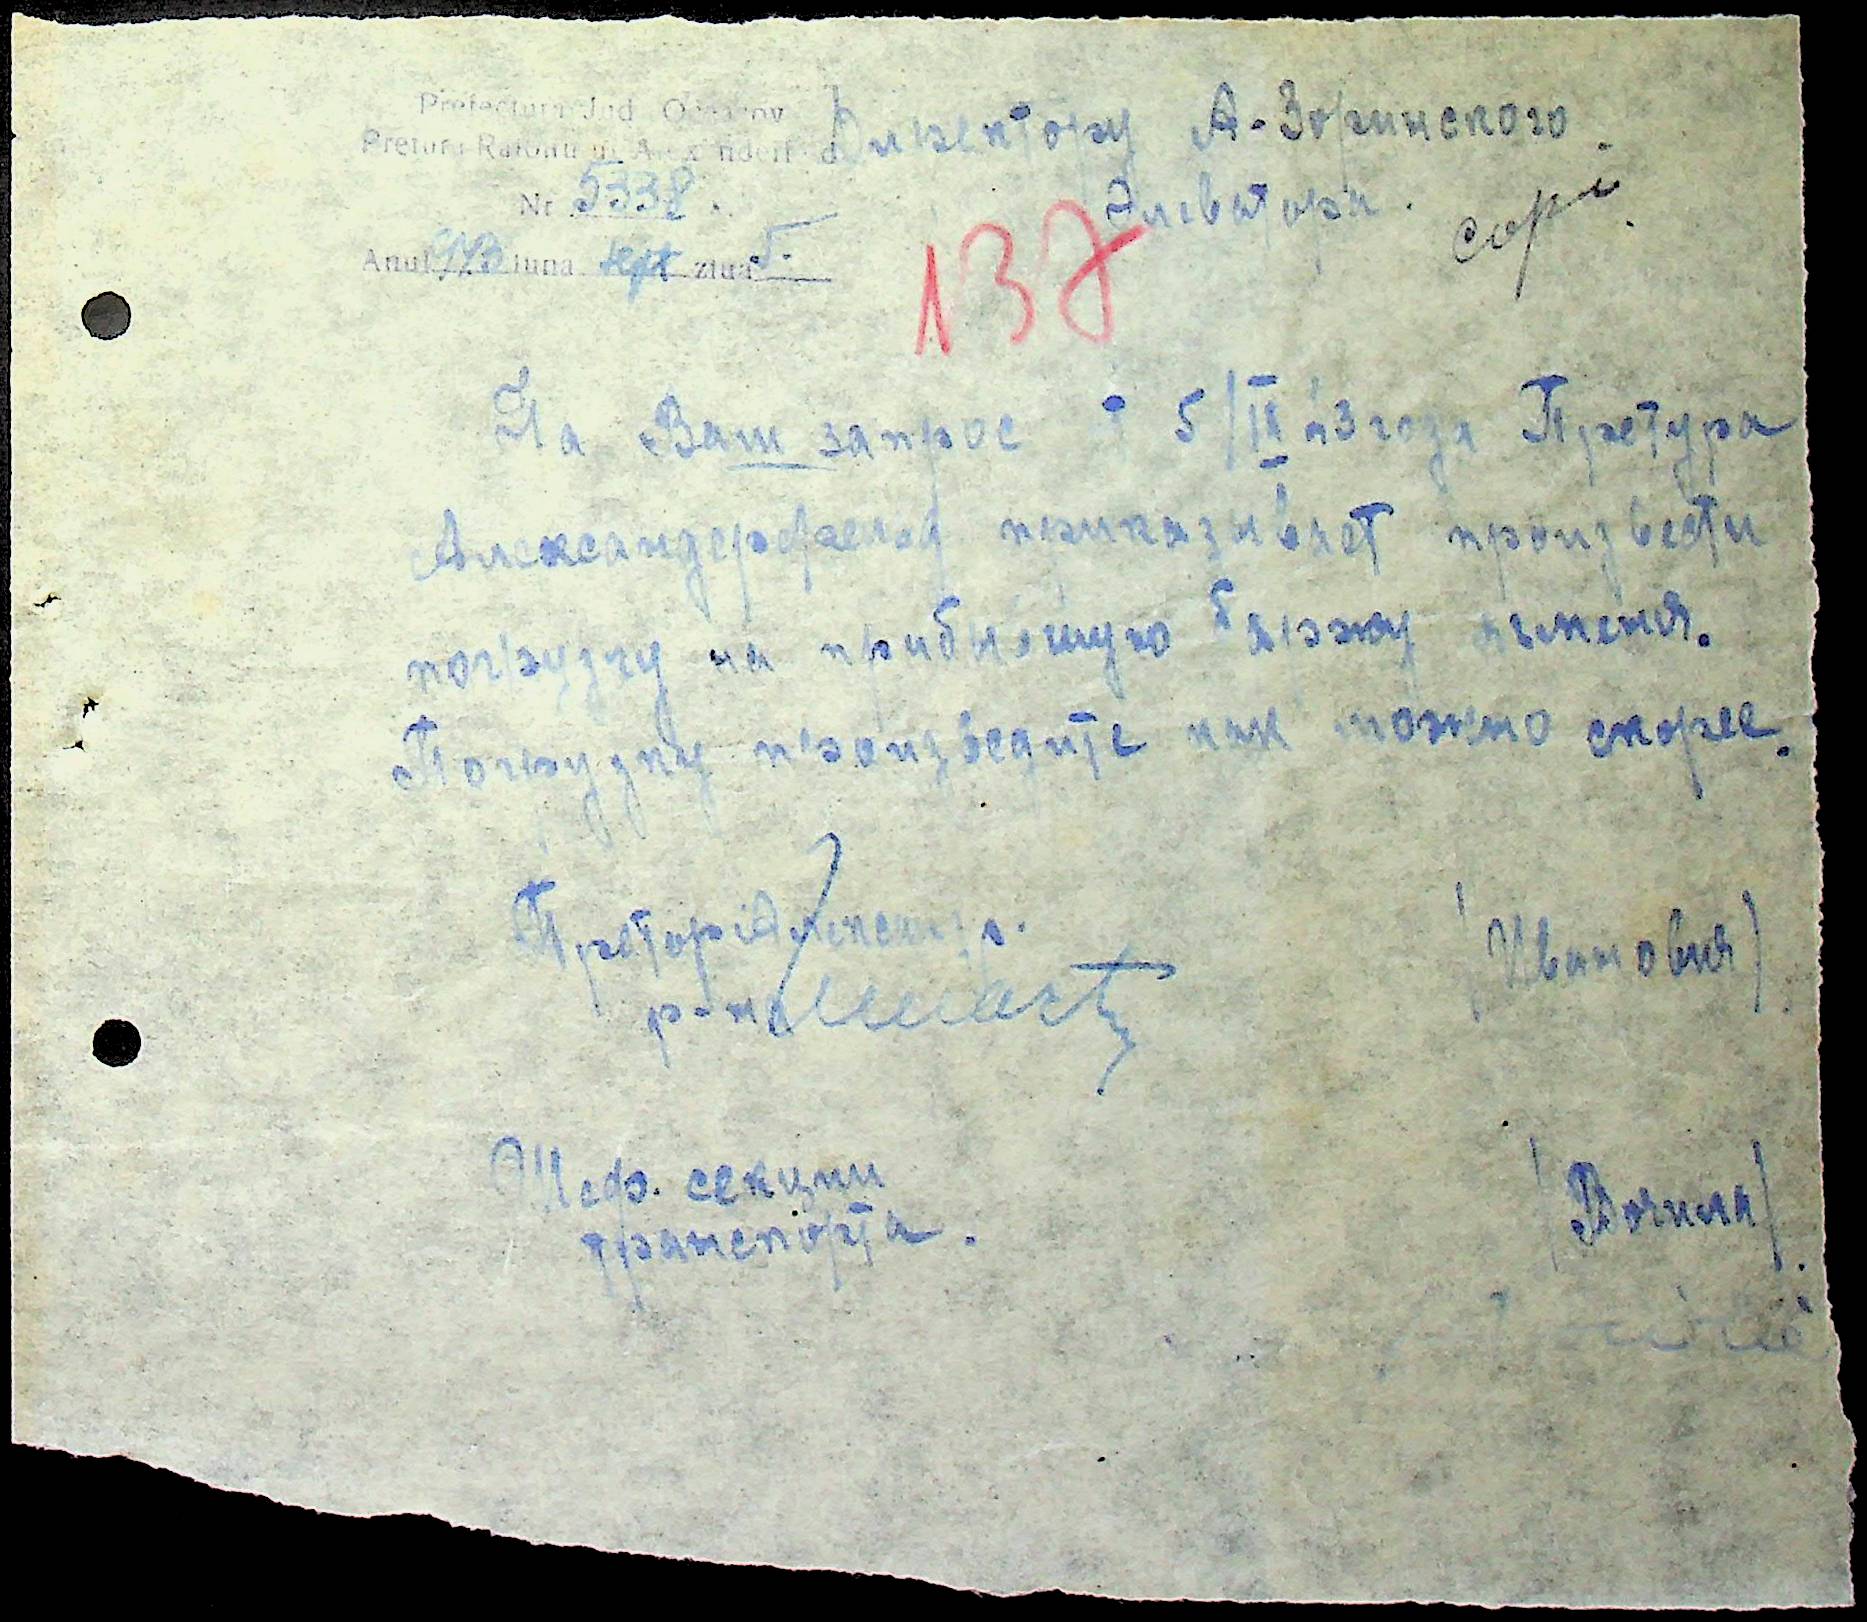 Prefectura Jud. Oceacov
Pretura Raionului Alexanderfeld
Nr. 5338
Anul 943 luna sept ziua 5.
Директору А-Зоринского
Элеватора.
copie
137
На Ваш запрос 5/IX 43 года Претура
Александерфельд приказывает произвести
погрузку на прибывшую баржу ячменя.
Погрузку произведите как можно скорее.
Претор
р-на
/Иванович/.
Шеф. секции
транспорта.